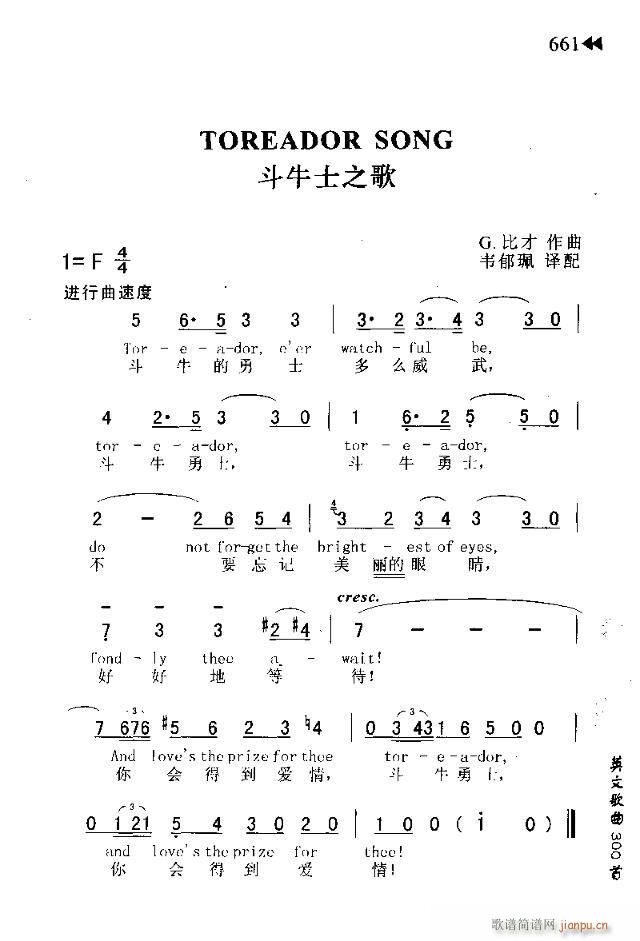 661
TOREADOR SONG
斗牛士之歌
G.比才 作曲
1=F 4/4
韦郁珮 译配
进行曲速度
5 6· 5 3 3 | 3· 2 3· 4 3 3 0 |
Tor - e - a-dor, e'er watch - ful be,
斗 牛 的 勇 士 多 么 威 武,
4 2· 5 3 3 0 | 1 6· 2 5 5 0 |
tor - e - a-dor, tor - e - a-dor,
斗 牛 勇 士, 斗 牛 勇 士,
2 - 2 6 5 4 | 4 3 2 3 4 3 3 0 |
do not for-get the bright - est of eyes,
不 要 忘 记 美 丽的 眼 睛,
cresc.
7 3 3 #2 #4 | 7 - - - |
fond - ly thee a - wait!
好 好 地 等 待!
7 676 #5 6 2 3 ♮4 | 0 3 43 1 6 5 0 0 |
And love's the prize for thee tor - e - a-dor,
你 会 得 到 爱 情, 斗 牛 勇 士,
0 1 21 5 4 3 0 2 0 | 1 0 0 ( i 0 ) ‖
and love's the prize for thee!
你 会 得 到 爱 情!
英文歌曲300首
歌谱简谱网
jianpu.cn